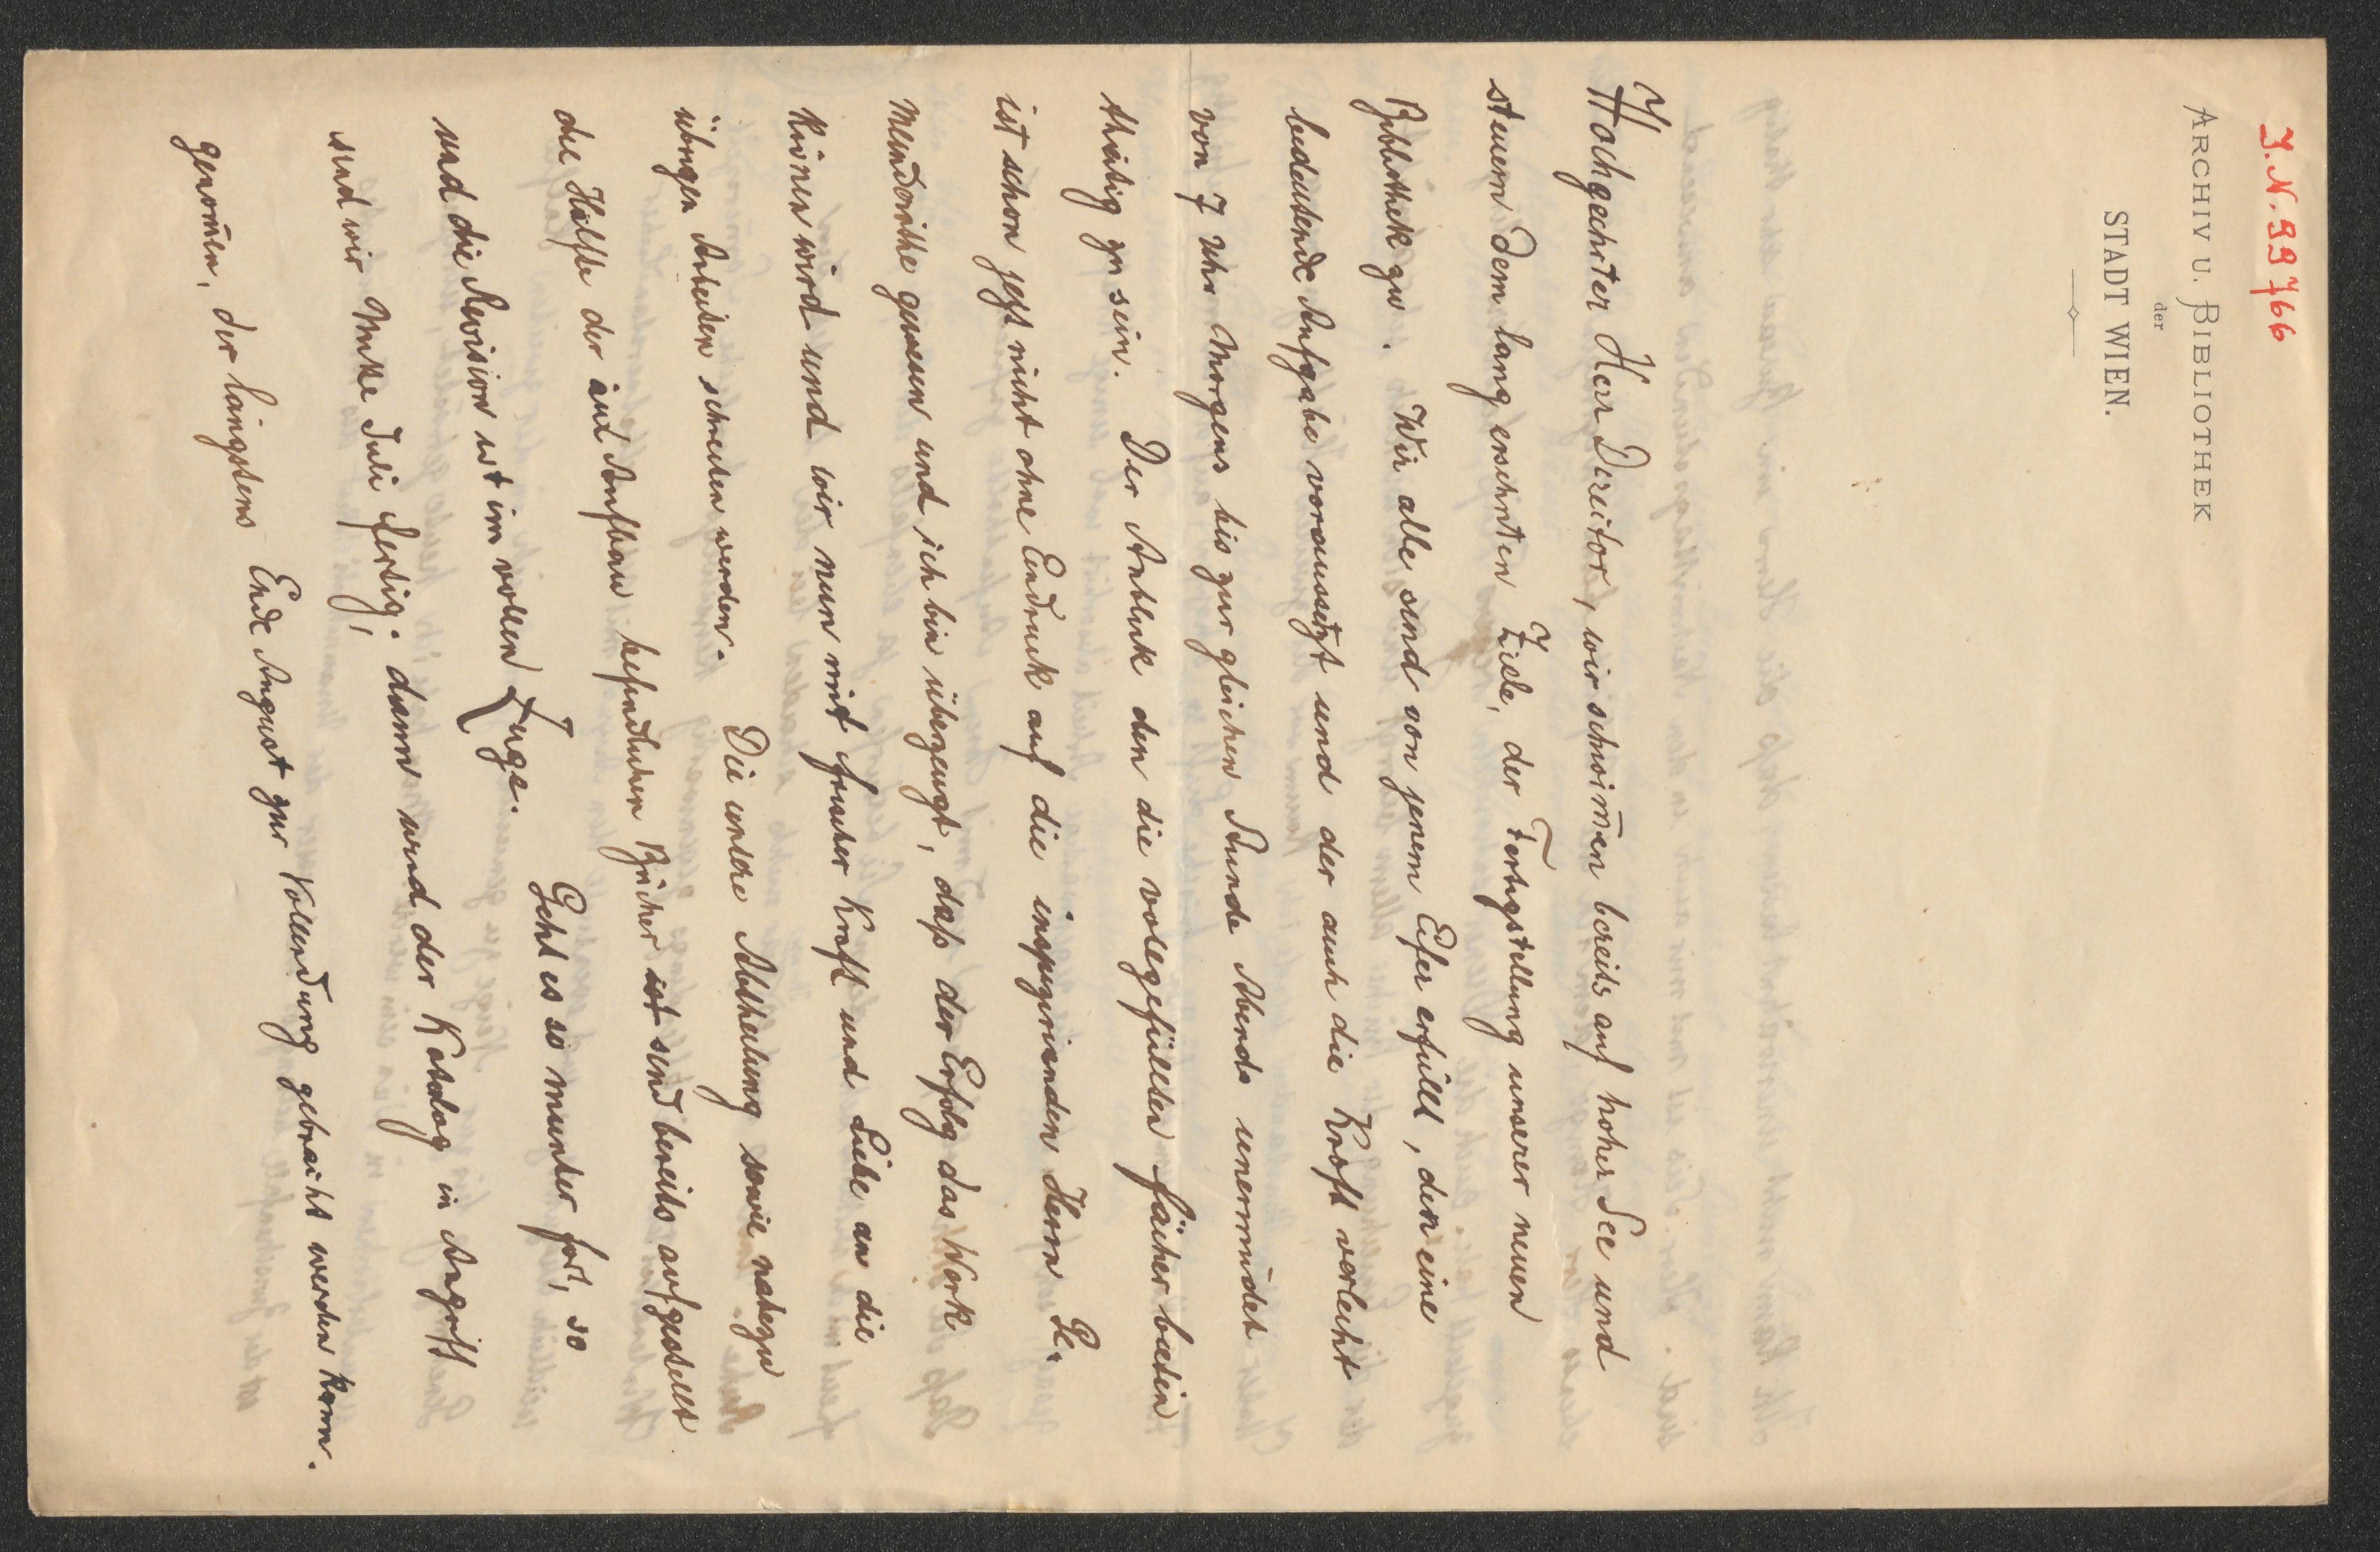 J. N. 99766
ARCHIV U. BIBLIOTHEK
der
STADT WIEN.
Hochgeehrter Herr Direitor, wir schwim̄en bereits auf hoher See und
steuern dem lang ersehnten Ziele, der Fertigstellung unserer neuen
Bibliothek zu. Wir alle sind von jenem Eifer erfüllt, den eine
bedeutende Aufgabe voraussetzt und der auch die Kraft verleiht
von 7 Uhr Morgens bis zur gleichen Stunde Abends unermüdet
thätig zu sein. Der Anblick den die vollgefüllten Fächer bieten
ist schon jetzt nicht ohne Eindruck auf die inspizirenden Herrn Ge-
meinderäthe gewesen und ich bin überzeugt, daß der Erfolg das Werk
krönen wird und wir nun mit frischer Kraft und Liebe an die
übrigen Arbeiten schreiten werden. Die untere Abtheilung sowie nahezu
die Hälfte der im Aufbau befindlichen Bücher ist sind bereits aufgestellt
und die Revision ist im vollen Zuge. Geht es so munter fort, so
sind wir Mitte Juli fertig; dann wird der Katalog in Angriff
genom̄en, der längstens Ende August zur Vollendung gebracht werden kann.